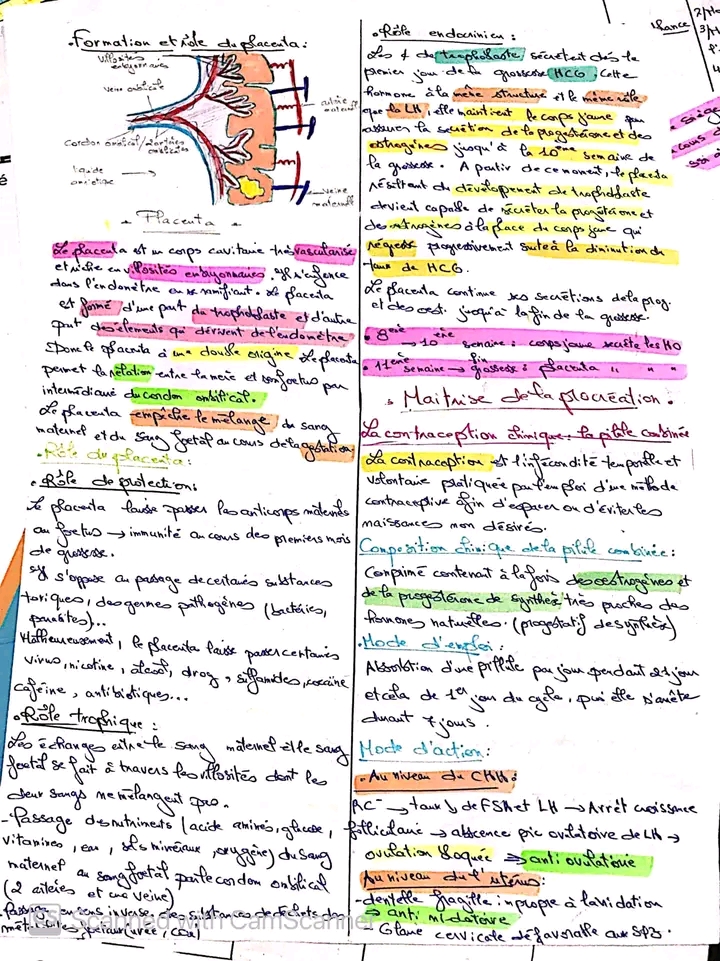 • Formation et rôle du placenta :
Villosités
embryonnaires
veine ombilicale
Cordon ombilical / 2 artères
ombilicales
liquide
amniotique
artère
maternelle
veine
maternelle
- Placenta -
Le placenta est un corps cavitaire très vascularisé
et riche en villosités embryonnaires. Il s'enfonce
dans l'endomètre en se ramifiant. Le placenta
est formé d'une part du trophoblaste et d'autre
part des élements qui dérivent de l'endomètre.
Donc le placenta a une double origine. Le placenta
permet la rélation entre la mère et son foetus par
intermédiaire du cordon ombilical.
Le placenta empêche le mélange du sang
maternel et du sang foetal au cours de la gestation
• Rôle du placenta :
• Rôle de protection :
Le placenta laisse passer les anticorps maternels
au foetus → immunité au cours des premiers mois
de grossesse.
Il s'oppose au passage de certaines substances
toxiques, des germes pathogènes (bactéries,
parasites)...
Malheureusement, le placenta laisse passer certains
virus, nicotine, alcool, drog, sulfamides, cocaïne
caféine, antibiotiques...
• Rôle trophique :
Les échanges entre le sang maternel et le sang
foetal se fait à travers les villosités dont les
deux sangs ne mélangent pas.
- Passage des nutriments (acide aminés, glucose,
vitamines, eau, sels minéraux, oxygène) du sang
maternel au sang foetal par le cordon ombilical
(2 artères et une veine)
- Passage en sens inverse, des substances de déchets des
(urée, CO2)
• Rôle endocrinien :
Les de trophoblaste sécrètent dès le
premier jour de la grossesse HCG. Cette
hormone à la même structure et le même rôle
que la LH, elle maintient le corps jaune pour
assurer la secrétion de la progestérone et des
estrogènes jusqu'à la 10ème semaine de
la grossesse. A partir de ce moment, le placenta
résultant du développement de trophoblaste
devient capable de sécréter la progestérone et
des estrogènes à la place du corps jaune qui
régresse progressivement suite à la diminution du
taux de HCG.
Le placenta continue ses secrétions de la prog.
et des oest. jusqu'à la fin de la grossesse.
• 8ème → 10ème semaine : corps jaune secrète les HO
• 11ème semaine → fin grossesse : placenta " " "
• Maitrise de la procréation.
La contraception chimique : la pilule combinée
La contraception est l'infécondité temporelle et
volontaire pratiquée par l'emploi d'une méthode
contraceptive afin d'espacer ou d'éviter les
naissances non désirés.
Composition chimique de la pilule combinée :
Comprimé contenant à la fois des oestrogènes et
de la progestérone de synthèse très proches des
hormones naturelles. (progestatif de synthèse)
• Mode d'emploi :
Absorbtion d'une pillule par jour pendant 21 jour
et cela de 1er jour du cycle, puis elle s'arrête
durant 7 jours.
Mode d'action :
- Au niveau du CHH :
RC⁻ → taux ↓ de FSH et LH → Arrêt croissance
folliculaire → abscence pic ovulatoire de LH →
ovulation bloquée ⇒ anti ovulatoire
Au niveau de l'utérus :
- dentelle fragile : inpropre à la nidation
⇒ anti nidatoire
- Glaire cervicale défavorable aux SPZ.
Scanned with CamScanner